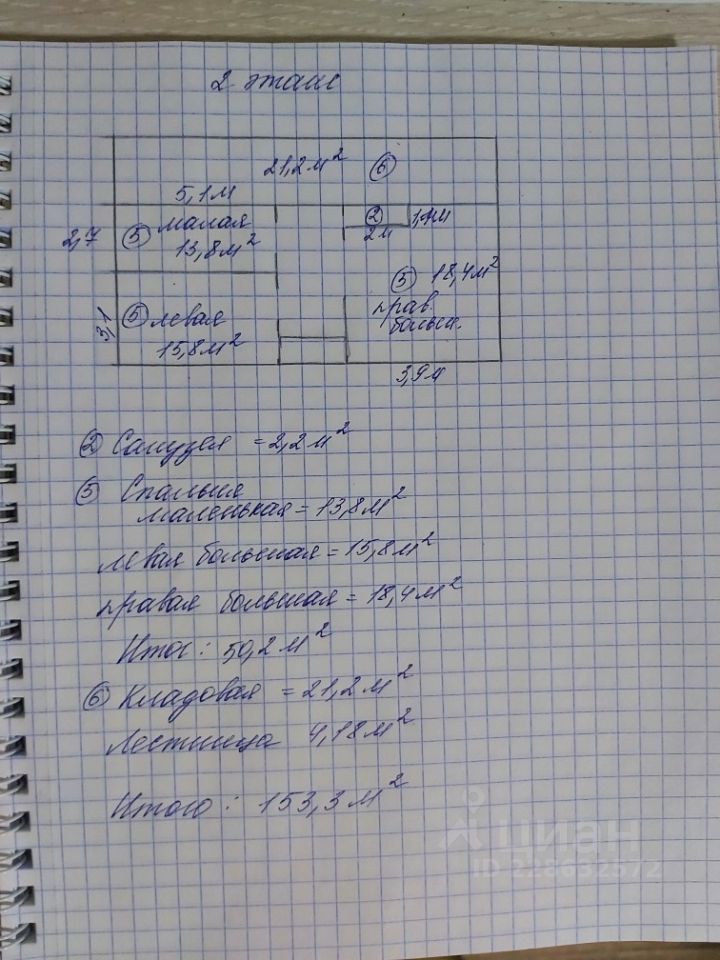 2 этаж
21,2 м² ⑥
5,1 м
2,7 ⑤ малая ② 1,1 м
13,8 м² 2 м
⑤ 18,4 м²
прав.
больш.
3,1 ⑤ левая
15,8 м²
3,9 м
② Санузел = 2,2 м²
⑤ Спальня
маленькая = 13,8 м²
левая большая = 15,8 м²
правая большая = 18,4 м²
Итог: 50,2 м²
⑥ Кладовая = 21,2 м²
Лестница 4,18 м²
Итого: 153,3 м²
циан
ID 228632572